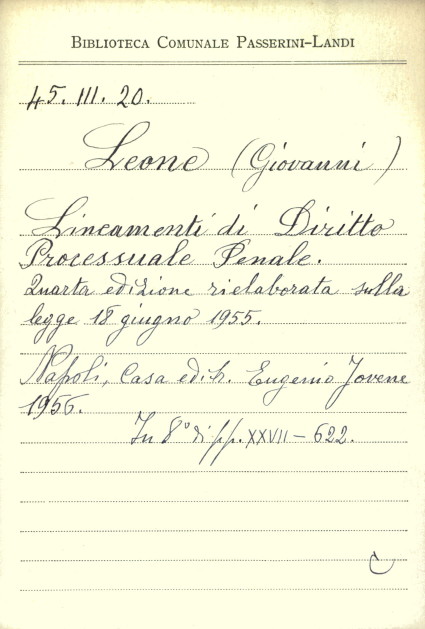 BIBLIOTECA COMUNALE PASSERINI-LANDI
45. III. 20.
Leone (Giovanni)
Lineamenti di Diritto
Processuale Penale.
Quarta edizione rielaborata sulla
legge 18 giugno 1955.
Napoli, Casa edit. Eugenio Jovene
1956.
In 8° di pp. XXVII – 622.
C